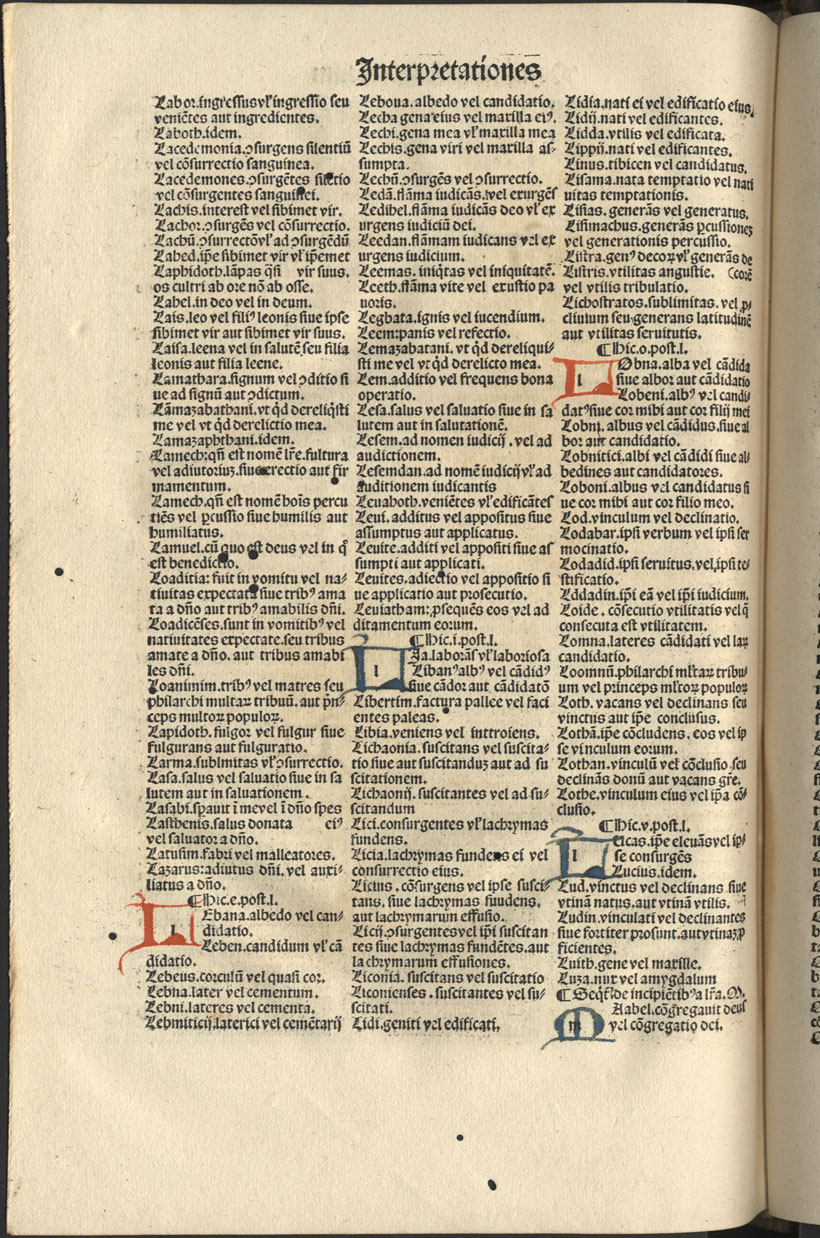 Interpretationes
Labor.ingressus vł ingressio seu
veniẽtes aut ingredientes.
Laboth.idem.
Lacedemonia.ꝯsurgens silentiũ
vel cõsurrectio sanguinea.
Lacedemones.ꝯsurgẽtes silẽtio
vel cõsurgentes sanguinei.
Lachis.interest vel sibimet vir.
Lachor.ꝯsurgẽs vel cõsurrectio.
Lachũ.ꝯsurrectõ vł ad ꝯsurgẽdũ
Lahed.ip̃e sibimet vir vł ip̃emet
Laphidoth.lãpas qsi vir suus.
os cultri ab ore nõ ab osse.
Lahel.in deo vel in deum.
Lais.leo vel filiꝰ leonis siue ipse
sibimet vir aut sibimet vir suus.
Laisa.leena vel in salutẽ seu filia
leonis aut filia leene.
Lamathara.signum vel ꝯditio si
ue ad signũ aut ꝯdictum.
Lãmazabathani.vt qd dereliq̃sti
me vel vt qd derelictio mea.
Lamazaphthani.idem.
Lamech:qñ est nomẽ lr̃e.fultura
vel adiutoriuz.siue erectio aut fir
mamentum.
Lamech.qñ est nomẽ hoĩs percu
tiẽs vel ꝑcussio siue humilis aut
humiliatus.
Lamuel.cũ quo est deus vel in q̃
est benedictio.
Laoaditia: fuit in vomitu vel na⸗
tiuitas expectata siue tribꝰ ama
ta a dño aut tribꝰ amabilis dñi.
Loadicẽses.sunt in vomitibꝰ vel
natiuitates expectate.seu tribus
amate a dño. aut tribus amabi
les dñi.
Loanimim.tribꝰ vel matres seu
philarchi multaꝝ tribuũ.aut p̃n⸗
ceps multoꝝ populoꝝ.
Lapidoth.fulgor vel fulgur siue
fulgurans aut fulguratio.
Larma.sublimitas vł ꝯsurrectio.
Lasa.salus vel saluatio siue in sa
lutem aut in saluationem.
Lasabi.sꝑauit ĩ me vel ĩ dño spes
Lasthenis.salus donata eiꝰ
vel saluator a dño.
Latusim.fabri vel malleatores.
Lazarus:adiutus dñi. vel auxi⸗
liatus a dño.
¶ Hic.e.post.l.
l
Ebana.albedo vel can⸗
didatio.
Leben.candidum vł cã
didatio.
Lebeus.corculũ vel quasi cor.
Lebna.later vel cementum.
Lebni.lateres vel cementa.
Lebmiticij.laterici vel cemẽtarij
Leboua.albedo vel candidatio.
Lecha gena eius vel maxilla eiꝰ.
Lechi.gena mea vł maxilla mea
Lechis.gena viri vel maxilla as⸗
sumpta.
Lechũ.ꝯsurgẽs vel ꝯsurrectio.
Ledã.flãma iudicãs.vel exurgẽs
Ledihel.flãma iudicãs deo vł ex
urgens iudiciũ dei.
Leedan.flãmam iudicans vel ex
urgens iudicium.
Leemas. iniq̃tas vel iniquitatẽ.
Leeth.flãma vite vel exustio pa
uoris.
Legbata.ignis vel iucendium.
Leem:panis vel refectio.
Lemazabatani. vt qd dereliqui⸗
sti me vel vt qd derelicto mea.
Lem.additio vel frequens bona
operatio.
Lesa.salus vel saluatio siue in sa
lutem aut in salutationẽ.
Lesem.ad nomen iudicij . vel ad
audictionem.
Lesemdan.ad nomẽ iudicij vł ad
auditionem iudicantis
Leuahoth.veniẽtes vł edificãtes
Leui. additus vel appositus siue
assumptus aut applicatus.
Leuite.additi vel appositi siue as
sumpti aut applicati.
Leuites.adiectio vel appositio si
ue applicatio aut prosecutio.
Leuiatham:ꝑsequẽs eos vel ad
ditamentum eorum.
¶ Hic.i.post.l.
l
Ia.laborãs vł laboriosa
Libanꝰ albꝰ vel cãdidꝰ
siue cãdor aut cãdidatõ
Libertim.factura pallee vel faci
entes paleas.
Libia.veniens vel inttroiens.
Lichaonia.suscitans vel suscita⸗
tio siue aut suscitanduz aut ad su
scitationem.
Lichaonij.suscitantes vel ad su⸗
scitandum
Lici.consurgentes vł lachrymas
fundens.
Licia.lachrymas fundens ei vel
consurrectio eius.
Licius . cõsurgens vel ipse susci⸗
tans. siue lachrymas fuudens.
aut lachrymarum effusio.
Licij.ꝯsurgentes vel ip̃i suscitan
tes siue lachrymas fundẽtes.aut
lachrymarum effusiones.
Liconia. suscitans vel suscitatio
Liconienses . suscitantes vel su⸗
scitati.
Lidi.geniti vel edificati.
Lidia.nati ei vel edificatio eius.
Lidij.nati vel edificantes.
Lidda.vtilis vel edificata.
Lippij.nati vel edificantes.
Linus.tibicen vel candidatus.
Lisama.nata temptatio vel nati
uitas temptationis.
Lisias. generãs vel generatus.
Lisimachus.generãs ꝑcussionez
vel generationis percussio.
Listra.genꝰ decoꝝ vł generãs de
Listris.vtilitas angustie. (corẽ
vel vtilis tribulatio.
Lichostratos.sublimitas. vel ꝓ
cliuium seu generans latitudinẽ
aut vtilitas seruitutis.
¶ Hic.o.post.l.
l
Obna.alba vel cãdida
siue albor aut cãdidatio
Lobeni.albꝰ vel candi⸗
datꝰ siue cor mihi aut cor filij mei
Lobni. albus vel cãdidus.siue al
bor aut candidatio.
Lobnitici.albi vel cãdidi siue al
bedines aut candidatores.
Loboni.albus vel candidatus si
ue cor mihi aut cor filio meo.
Lod.vinculum vel declinatio.
Lodabar.ipsi verbum vel ipsi ser
mocinatio.
Lodadid.ipsi seruitus.vel ipsi te⸗
stificatio.
Lddadin.ip̃i eã vel ip̃i iudicium.
Loide . cõsecutio vtilitatis vel q̃
consecuta est vtilitatem.
Lomna.lateres cãdidati vel laꝝ
candidatio.
Loomnũ.philarchi mlt̃aꝝ tribu⸗
um vel princeps mlt̃oꝝ populoꝝ
Loth. vacans vel declinans seu
vinctus aut ip̃e conclusus.
Lothã.ip̃e cõcludens. eos vel ip
se vinculum eorum.
Lothan.vinculũ vel cõclusio seu
declinãs donũ aut vacans gr̃e.
Lothe.vinculum eius vel ip̃a cõ⸗
clusio.
¶ Hic.v.post.l.
l
Ucas.ip̃e eleuãs vel ip⸗
se consurgẽs
Lucius.idem.
Lud.vinctus vel declinans siue
vtinã natus.aut vtinã vtilis.
Ludin.vinculati vel declinantes
siue fortiter prosunt.aut vtinaz ꝓ
ficientes.
Luith.gene vel maxille.
Luza.nux vel amygdalum
¶ Seqt̃ de incipiẽtibꝰ a lr̃a.M.
m
Aabel.cõgregauit deus
vel cõgregatio dei.